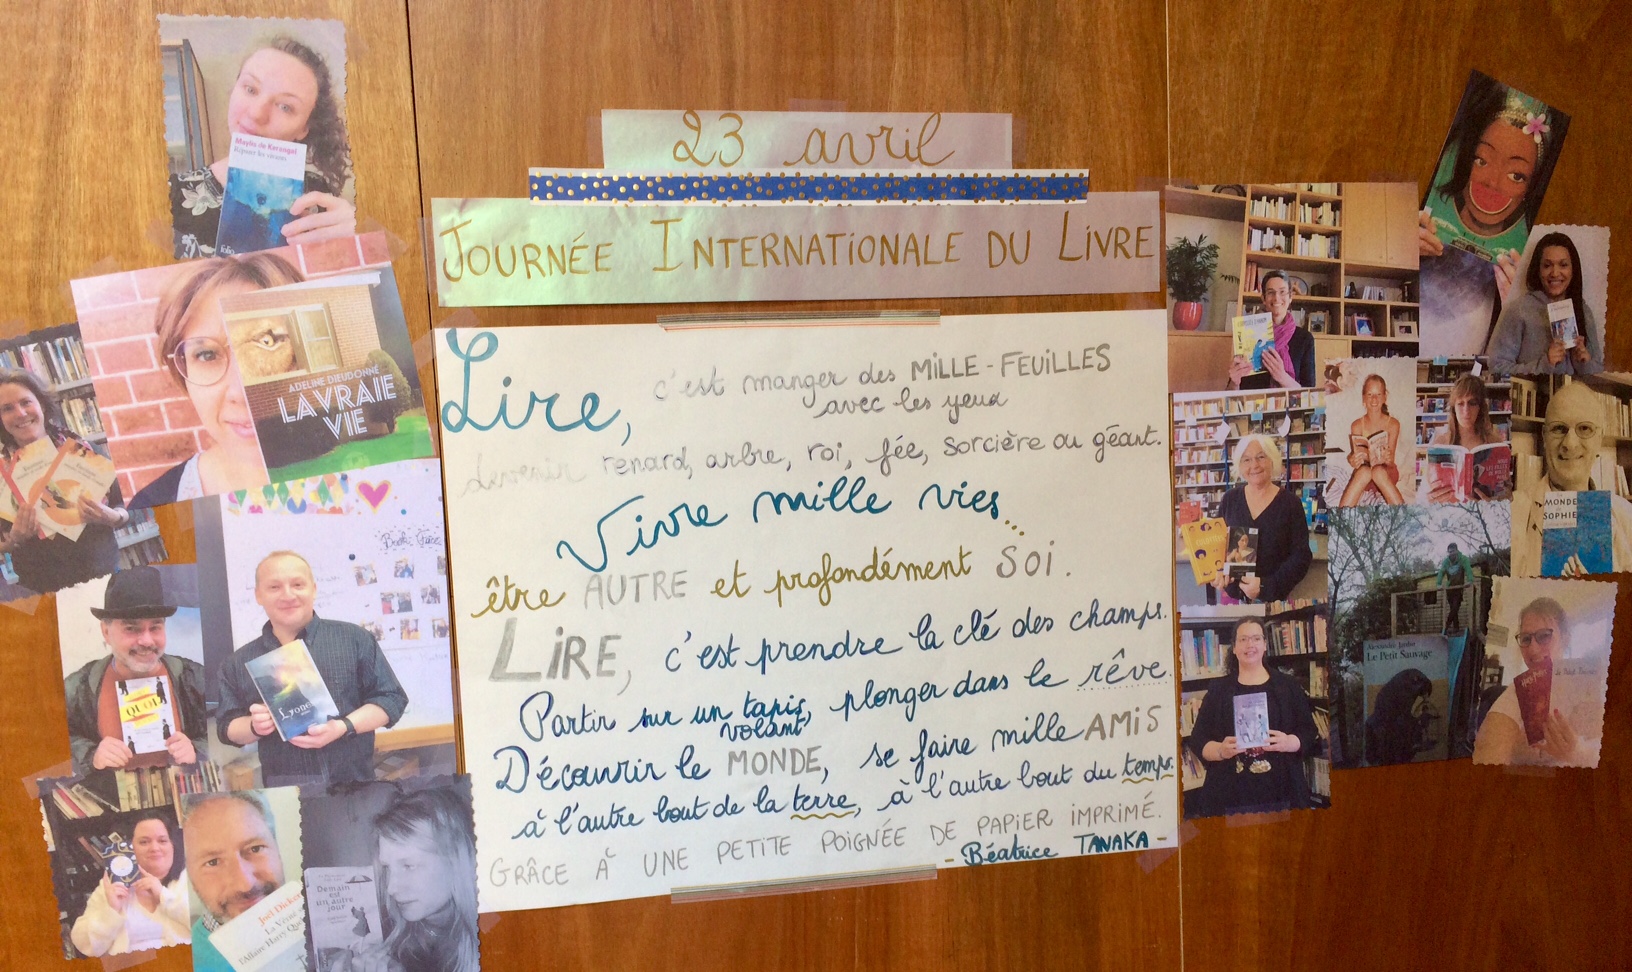 23 avril
JOURNÉE INTERNATIONALE DU LIVRE
Lire, c'est manger des MILLE-FEUILLES
avec les yeux
devenir renard, arbre, roi, fée, sorcière ou géant.
Vivre mille vies...
être AUTRE et profondément SOI.
LIRE, c'est prendre la clé des champs.
Partir sur un tapis volant, plonger dans le rêve.
Découvrir le MONDE, se faire mille AMIS
à l'autre bout de la terre, à l'autre bout du temps.
GRÂCE À UNE PETITE POIGNÉE DE PAPIER IMPRIMÉ.
- Béatrice TANAKA -
Maylis de Kerangal
Réparer les vivants
folio
ADELINE DIEUDONNÉ
LA VRAIE
VIE
QUOI
Joël Dicker
La Vérité
l'Affaire Harry
Demain
est
un autre
jour
MONDE
SOPHIE
Alexandre Jardin
Le Petit Sauvage